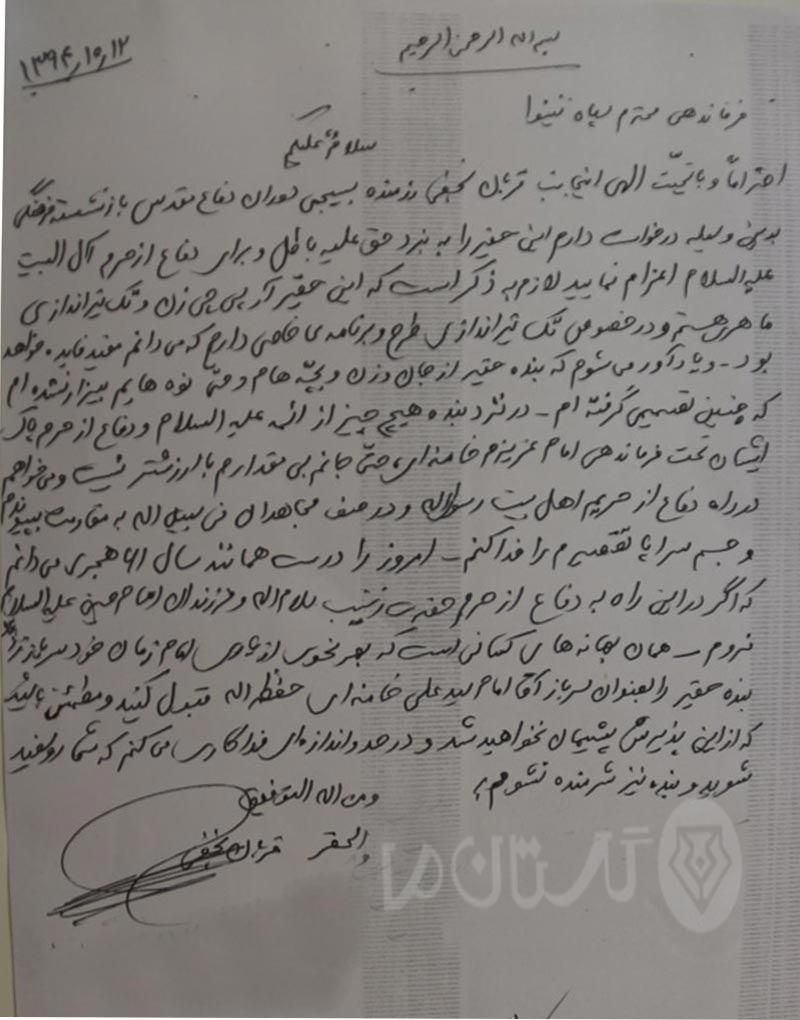 بسم الله الرحمن الرحیم
۱۳۹۴,۱۰,۱۲
فرماندهی محترم سپاه نینوا
سلام علیکم
احتراماً و با تحیّت الهی اینجانب قربان نجفی رزمنده بسیجی دوران دفاع مقدس بازنشسته فرهنگی
بدین وسیله درخواست دارم این حقیر را به نبرد حق علیه باطل و برای دفاع از حرم آل البیت
علیه السلام اعزام نمایید لازم به ذکر است که این حقیر آر پی جی زن و تک تیراندازی
ماهر هستم و در خصوص تک تیراندازی طرح و برنامه ی خاصی دارم که می دانم مفید فایده خواهد
بود - و یادآور می شوم که بنده حقیر از جان و زن و بچّه هام و حتی نوه هایم بیزار نشده ام
که چنین تصمیمی گرفته ام - در نزد بنده هیچ چیز از ائمه علیه السلام و دفاع از حرم پاک
ایشان تحت فرماندهی امام عزیزم خامنه ای، حتّی جانم بی مقدارم با ارزشتر نیست و می خواهم
در راه دفاع از حریم اهل بیت رسول الله و در صف مجاهدان فی سبیل الله به مقاومت بپیوندم
و جسم سراپا تقصیرم را فدا کنم - امروز را درست همانند سال ۶۱ هجری می دانم
که اگر در این راه به دفاع از حرم حضرت زینب سلام الله و فرزندان امام حسین علیه السلام
نروم - همان بهانه های کسانی است که بهر نحوی از یاری امام زمان خود سرباز زدند
بنده حقیر را بعنوان سرباز آقا امام سید علی خامنه ای حفظه الله قبول کنید و مطمئن باشید
که از این پذیرش پشیمان نخواهید شد و در حد و اندازه ای فداکاری می کنم که شما روسفید
شوید و بنده نیز شرمنده نشوم
و من الله التوفیق
الحقر قربان نجفی
گلستان ما